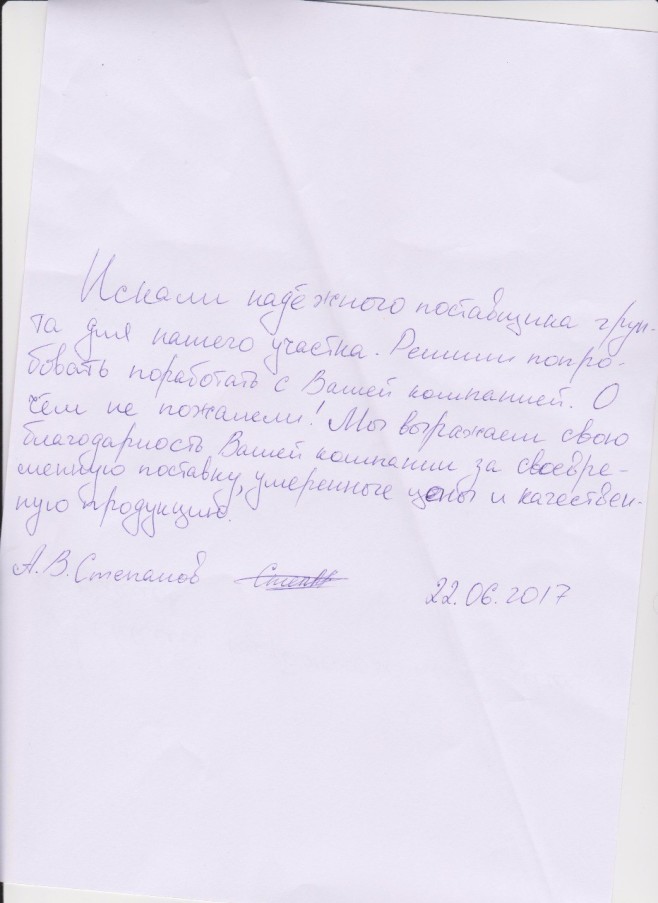 Искали надёжного поставщика грун-
та для нашего участка. Решили попро-
бовать поработать с Вашей компанией. О
чём не пожалели! Мы выражаем свою
благодарность Вашей компании за своевре-
менную поставку, умеренные цены и качествен-
ную продукцию.
А.В.Степанов
22.06.2017